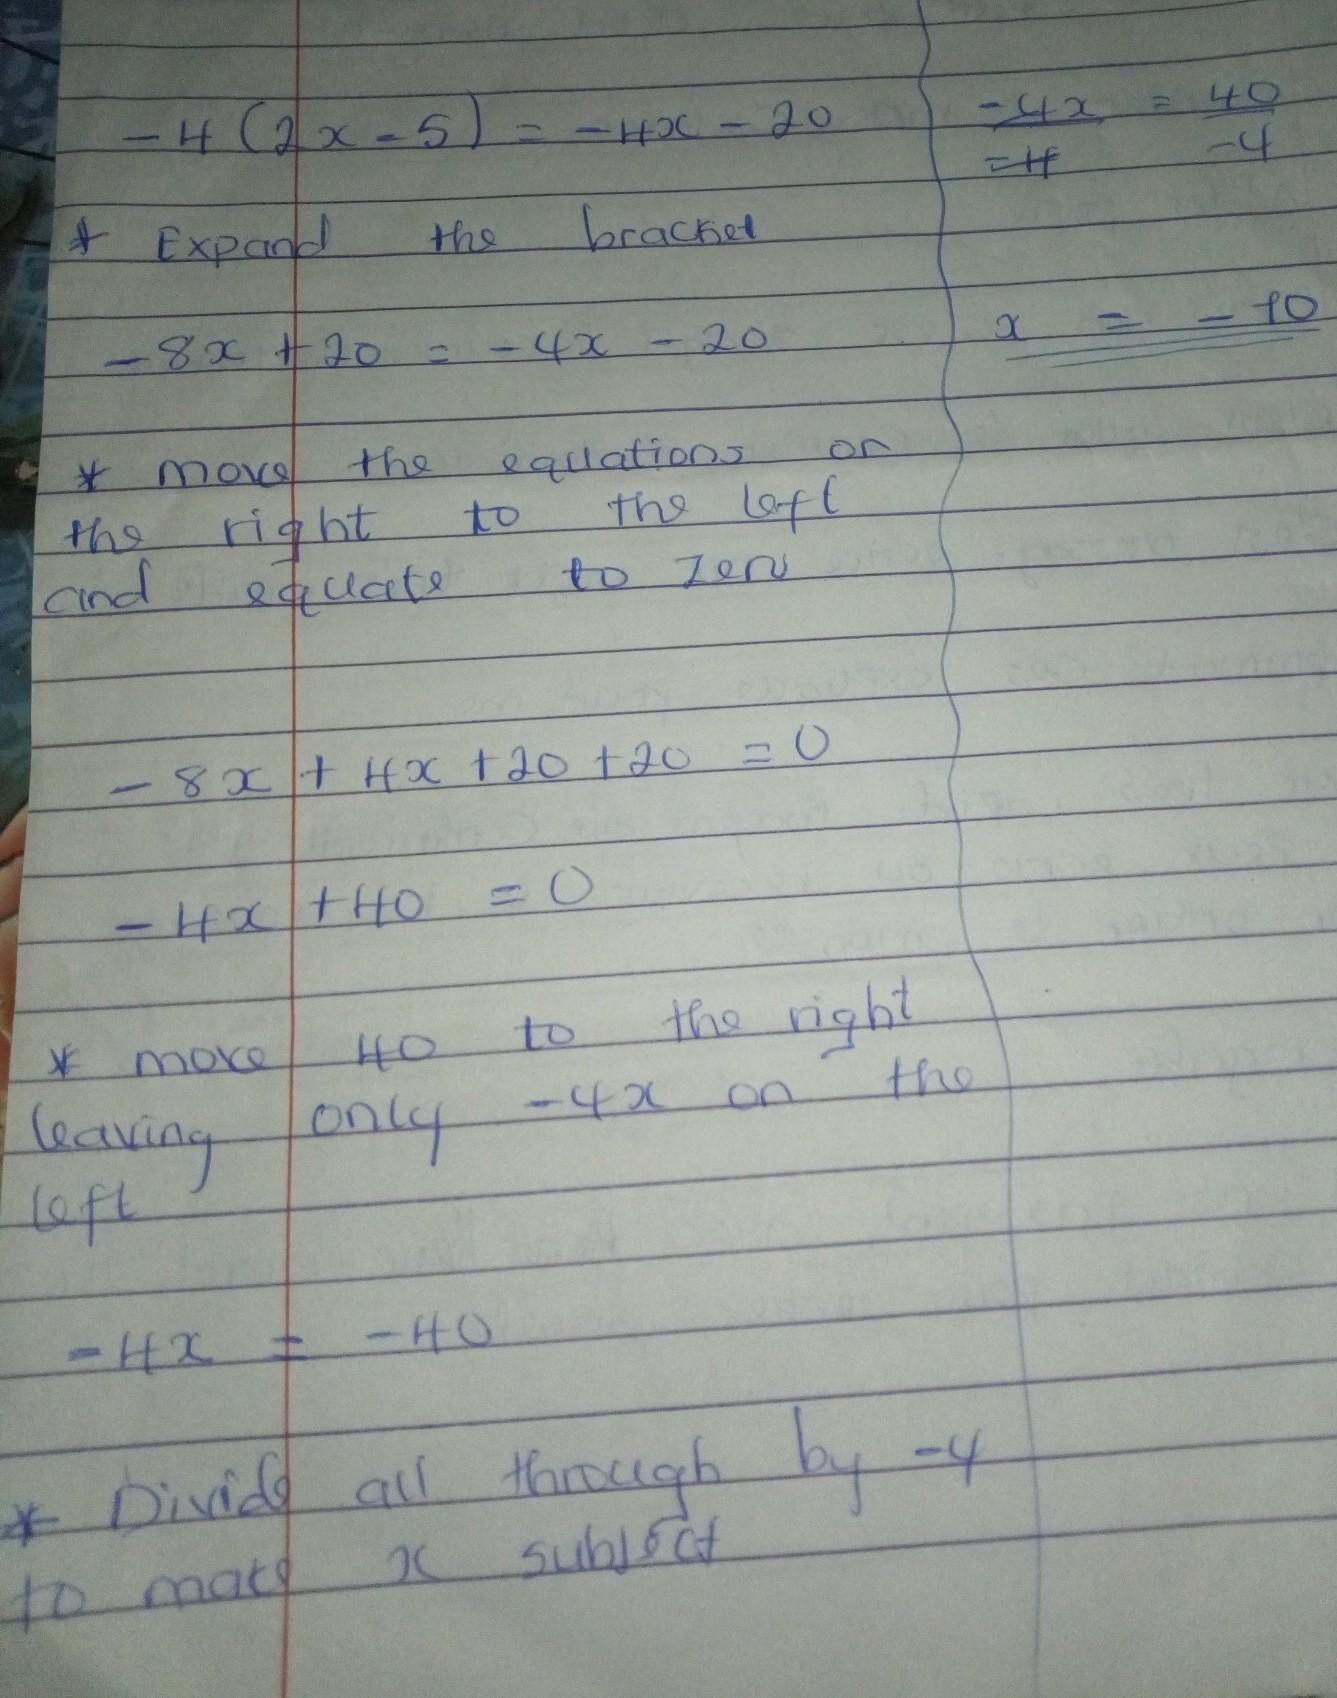 -4(2x-5) = -4x - 20
* Expand the bracket
-8x + 20 = -4x - 20
* move the equations on
the right to the left
and equate to zero
-8x + 4x + 20 + 20 = 0
-4x + 40 = 0
* move 40 to the right
leaving only -4x on the
left
-4x = -40
* Divide all through by -4
to make x subject
-4x = 40
-4 -4
x = -10